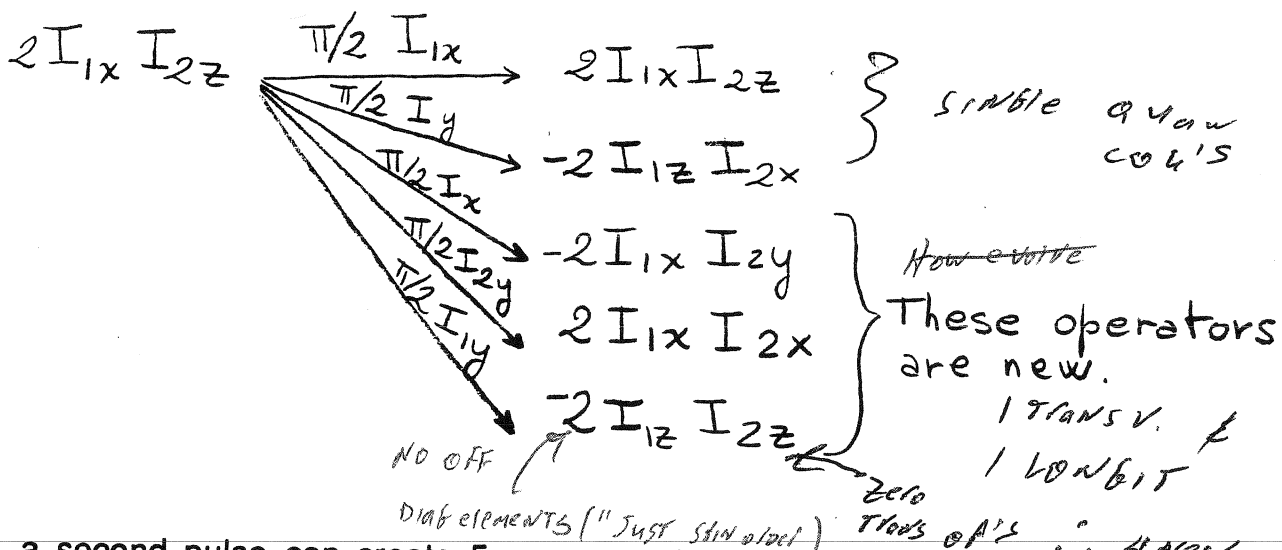 2I₁ₓ I₂z π/2 I₁ₓ 2I₁ₓI₂z
π/2 I_y -2 I₁z I₂ₓ
single quan
coh's
π/2 Iₓ -2I₁ₓ I₂y
π/2 I₂y 2 I₁ₓ I₂ₓ
π/2 I₁y -2 I₁z I₂z
How evolve
These operators
are new.
1 Transv. &
1 LONGIT
NO OFF
Diag elements ("Just
Zero
Trans op's
a second pulse can create 5